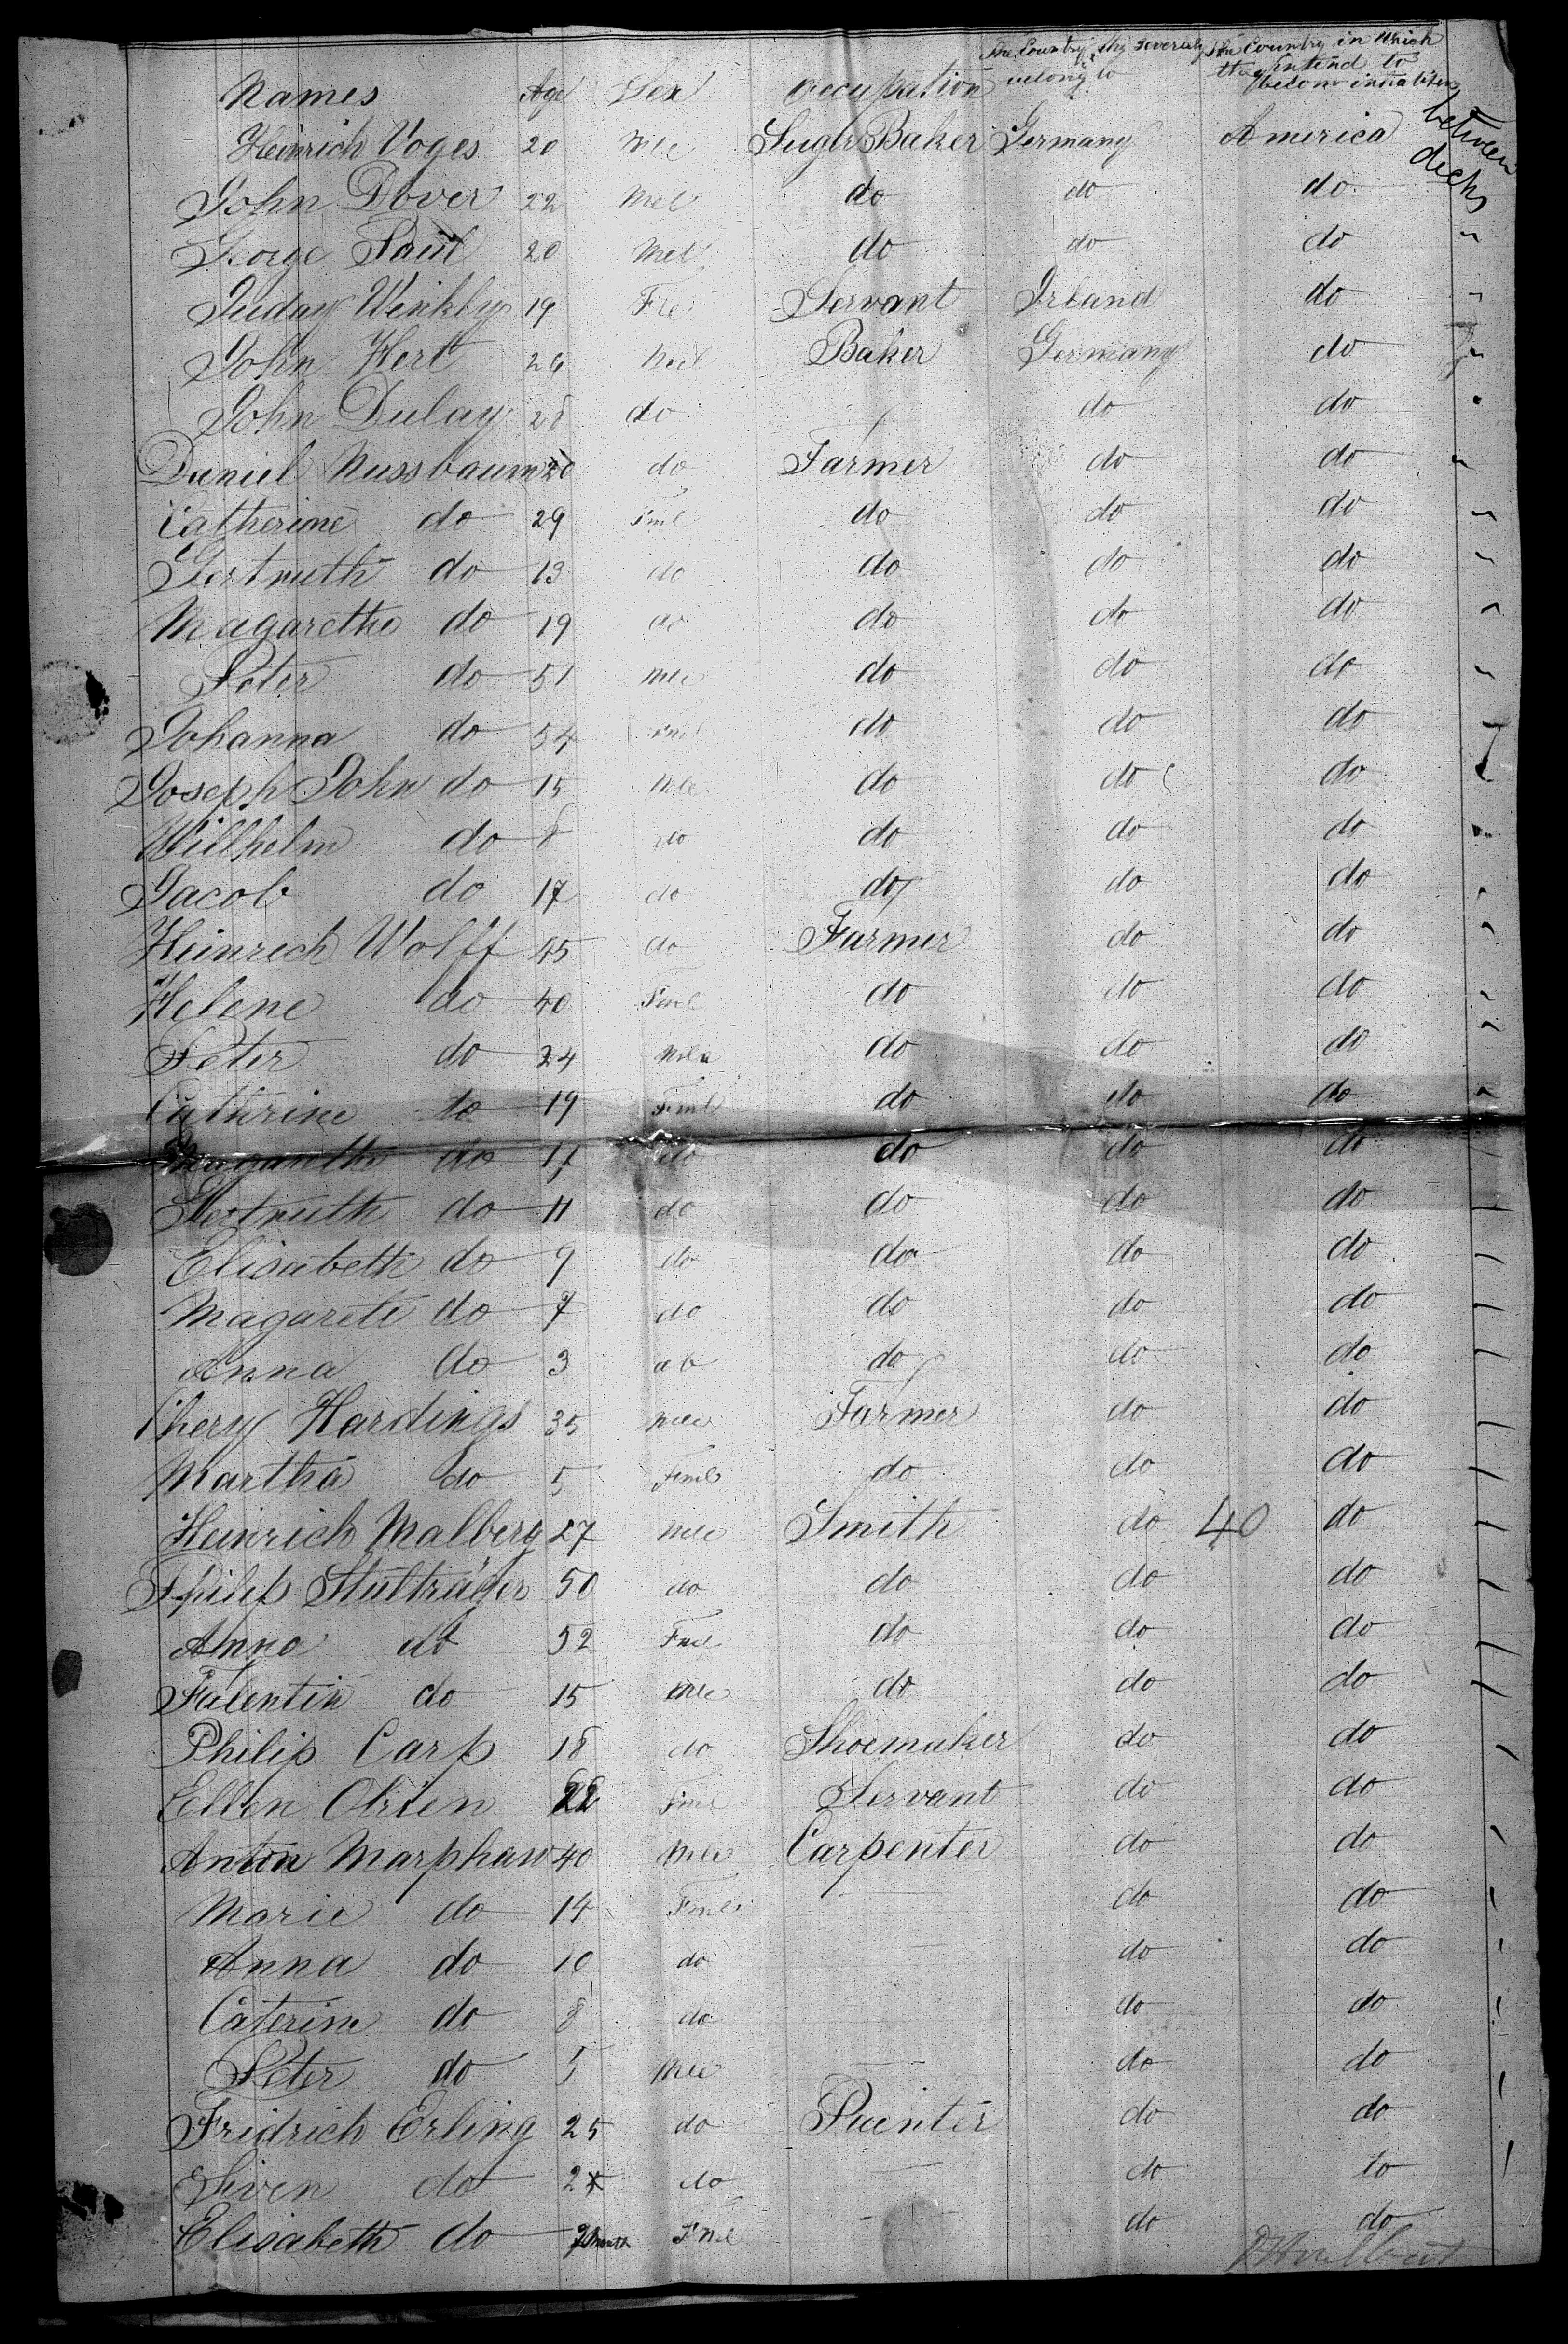 Names Age Sex occupation The Country they severaly belong to The Country in which they intend to become inhabiters
Heinrich Voges 20 Mle Sugar Baker Germany America between decks
John Dover 22 Mel do do do
George Paul 20 Mel do do do "
Juday Winkley 19 Fle Servant Irland do "
John Hert 26 Mel Baker Germany do "
John Dulay 28 do do do
Daniel Nussbaum 20 do Farmer do do "
Catherine do 29 Fml do do do "
Gertruth do 13 do do do do "
Magarethe do 19 do do do do
Peter do 51 Mle do do do
Johanna do 54 Fml do do do
Joseph John do 15 Mle do do do
Willhelm do 8 do do do do
Jacob do 17 do do do do
Heinrech Wolff 45 do Farmer do do
Helene do 40 Fml do do do
Peter do 24 Mle do do do
Cathrine do 19 Fml do do do
Magarethe do 17 do do do do
Gertruth do 11 do do do do
Elisabeth do 9 do do do do
Magarete do 7 do do do do
Anna do 3 do do do do
Chery Hardings 35 Mle Farmer do do
Martha do 5 Fml do do do
Heinrich Malberg 27 Mle Smith do 40 do
Philip 50 do do do do
Anna do 52 Fml do do do
Falentin do 15 Mle do do do
Philip Carp 18 do Shoemaker do do
Ellen Obrien 22 Fml Servant do do
Anton Marphaw 40 Mle Carpenter do do
Marie do 14 Fml do do
Anna do 10 do do do
Caterine do 8 do do do
Peter do 5 Mle do do
Fridrich Erling 25 do Painter do do
do 2* do do do
Elisabeth do 9 Month Fml do do